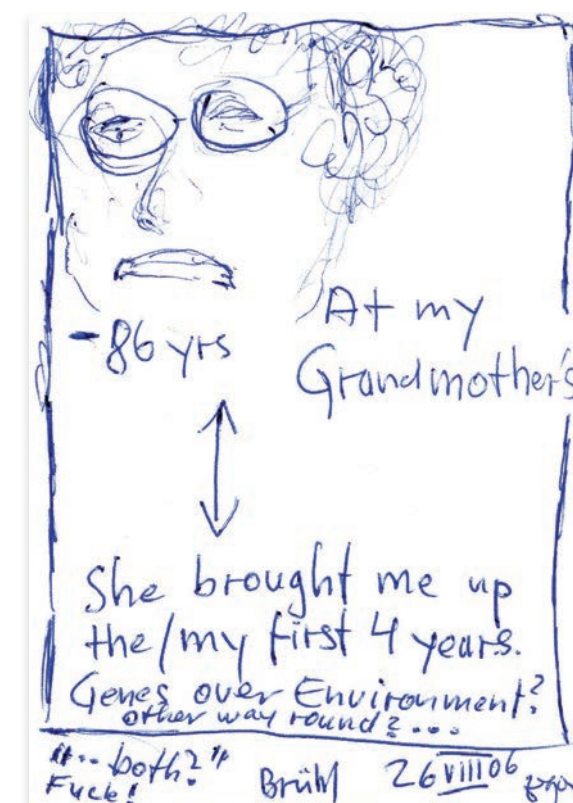 -86 yrs
At my
Grandmother's
She brought me up
the/my first 4 years.
Genes over Environment?
other way round?...
"...both?"
Fuck!
Brühl 26 VIII 06